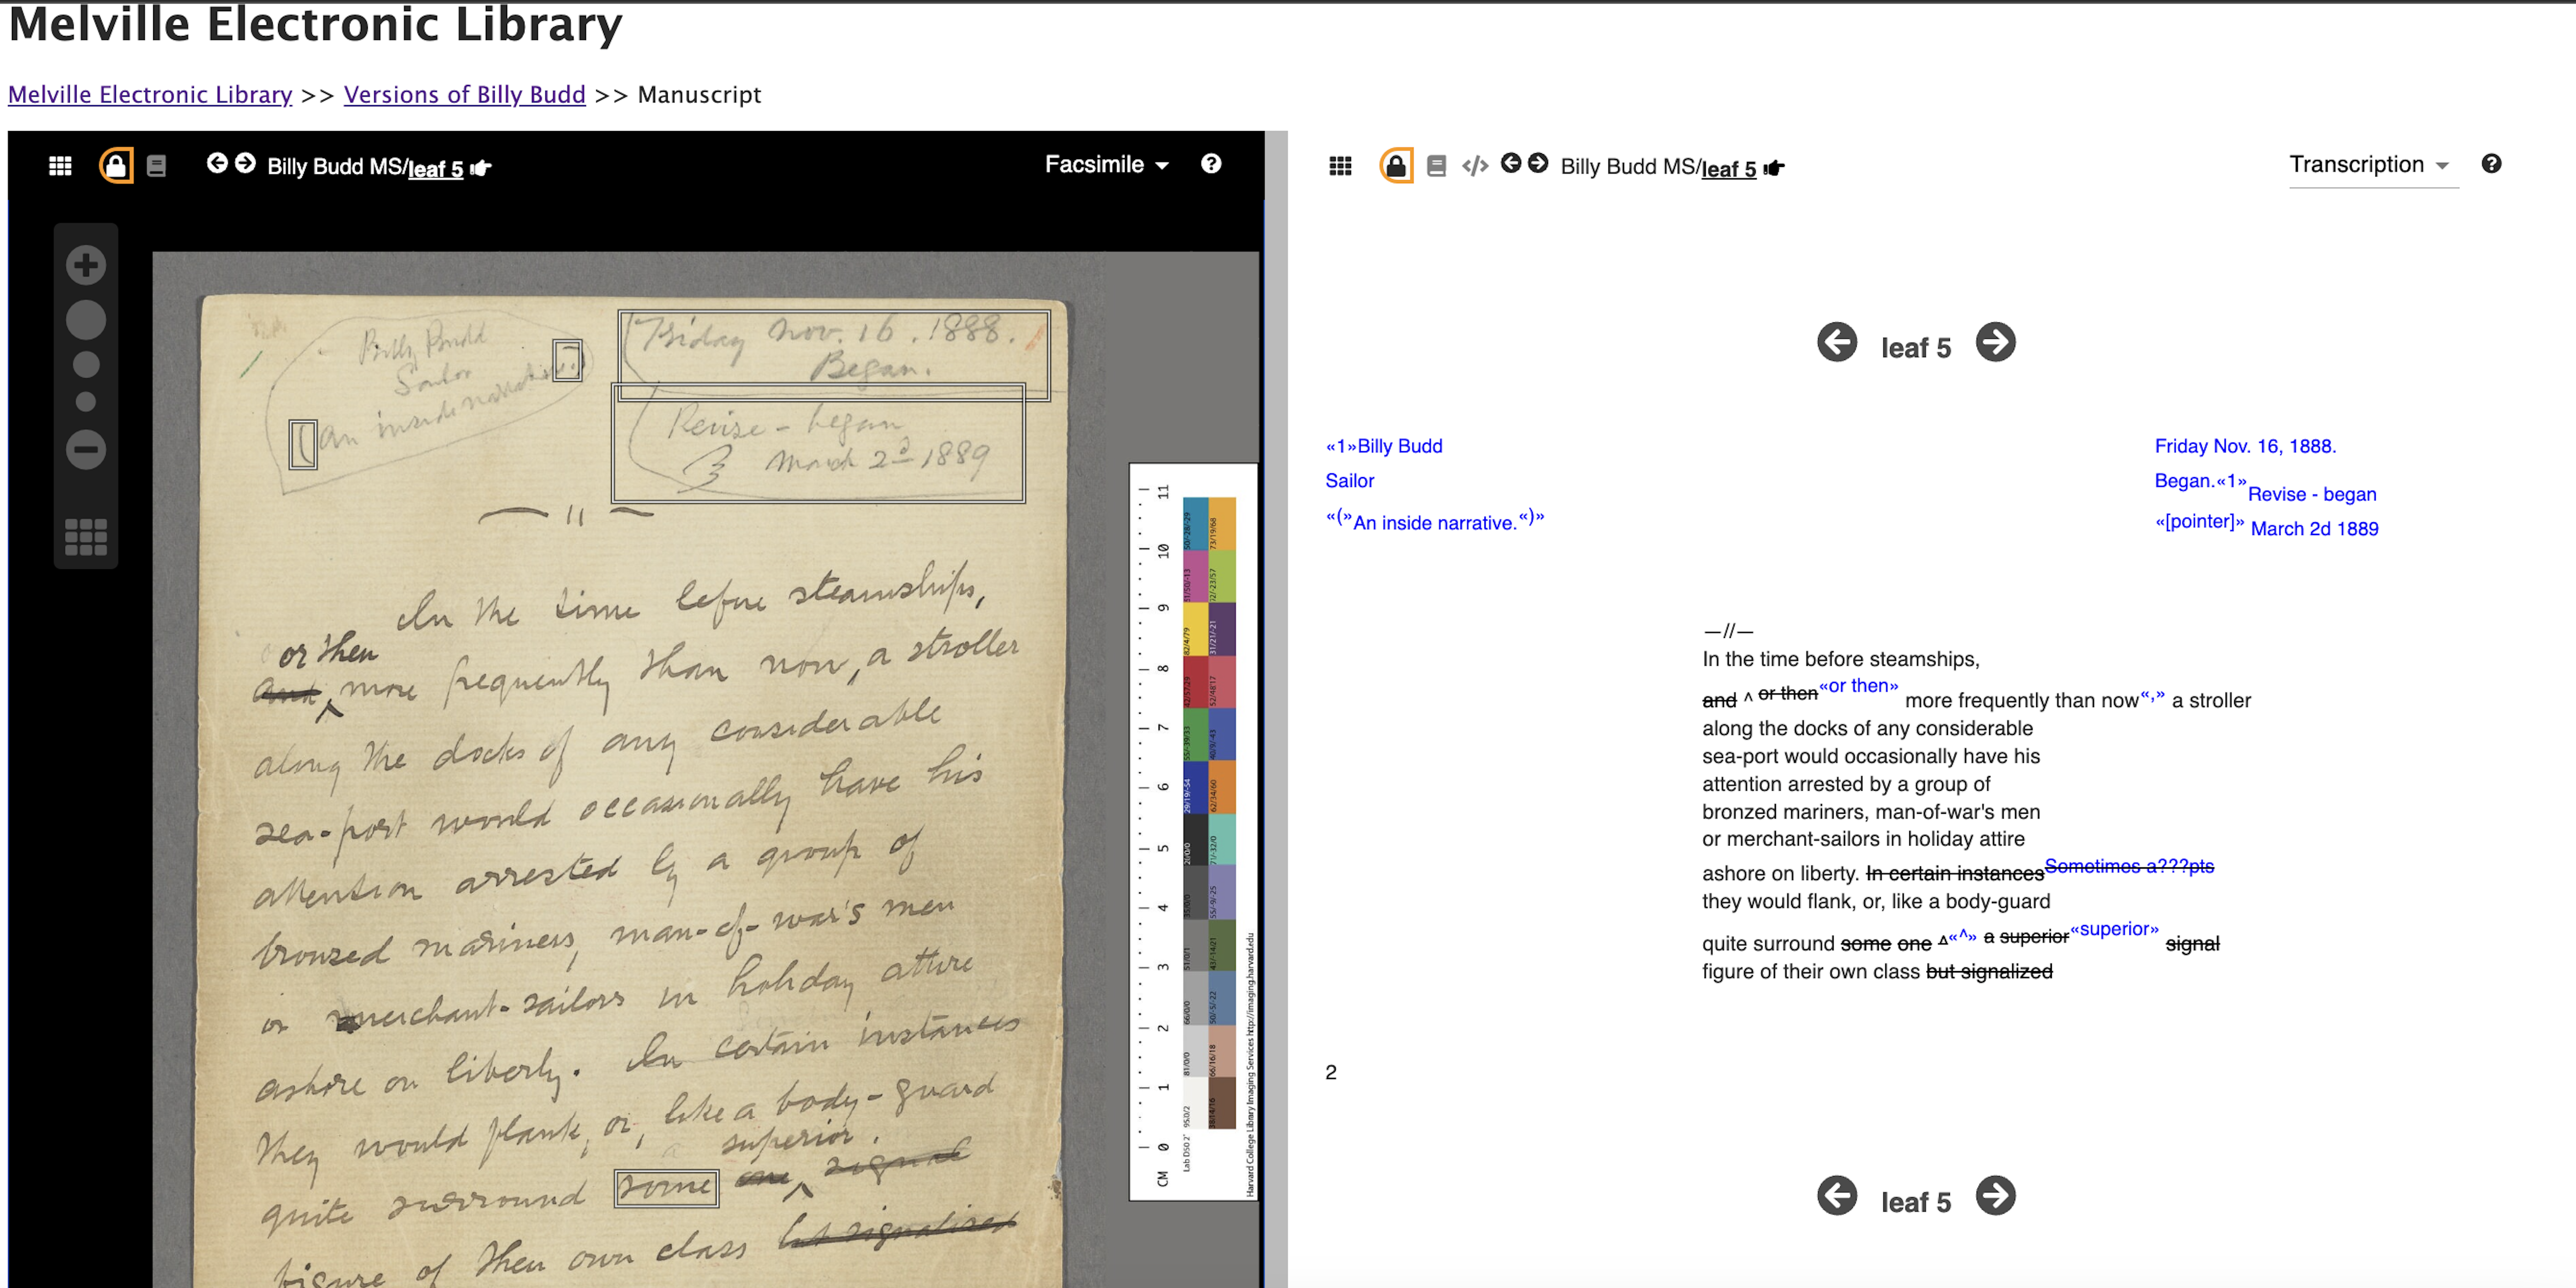 Melville Electronic Library
Melville Electronic Library >> Versions of Billy Budd >> Manuscript
Billy Budd MS/leaf 5
Facsimile
Billy Budd
Sailor
(An inside narrative.)
Friday Nov. 16. 1888.
Began.
Revise - began
March 2d 1889
— // —
In the time before steamships,
or then
and ^ more frequently than now, a stroller
along the docks of any considerable
sea-port would occasionally have his
attention arrested by a group of
bronzed mariners, man-of-war's men
or merchant-sailors in holiday attire
ashore on liberty. In certain instances
they would flank, or, like a body-guard
a superior.
quite surround some one ^ signal
figure of their own class but signalized
CM 0 1 2 3 4 5 6 7 8 9 10 11
Harvard College Library Imaging Services http://imaging.harvard.edu
Billy Budd MS/leaf 5
Transcription
leaf 5
«1»Billy Budd
Sailor
«(»An inside narrative.«)»
Friday Nov. 16, 1888.
Began.«1»
Revise - began
«[pointer]» March 2d 1889
—//—
In the time before steamships,
and ^ or then«or then» more frequently than now«,» a stroller
along the docks of any considerable
sea-port would occasionally have his
attention arrested by a group of
bronzed mariners, man-of-war's men
or merchant-sailors in holiday attire
ashore on liberty. In certain instances Sometimes a???pts
they would flank, or, like a body-guard
quite surround some one ▵«^» a superior«superior» signal
figure of their own class but signalized
2
leaf 5